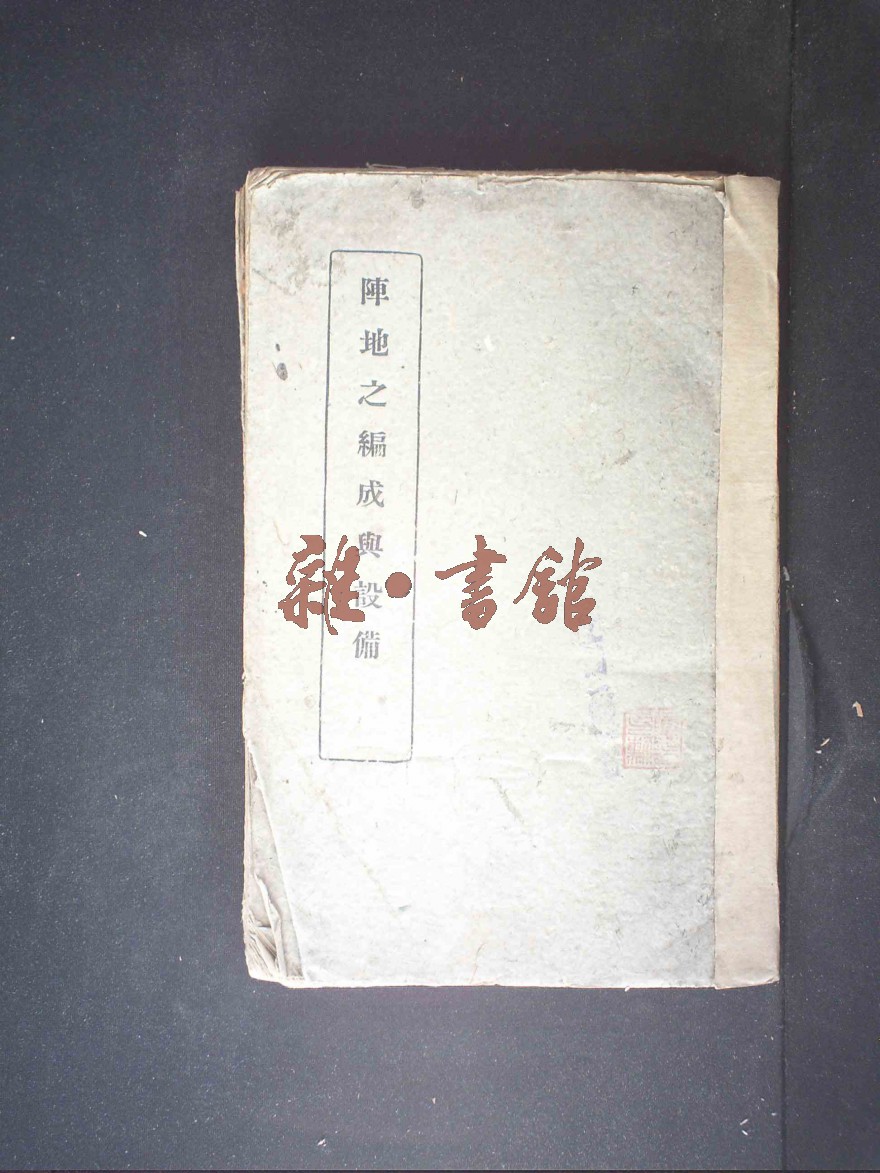 陣地之編成與設備
雜·書館